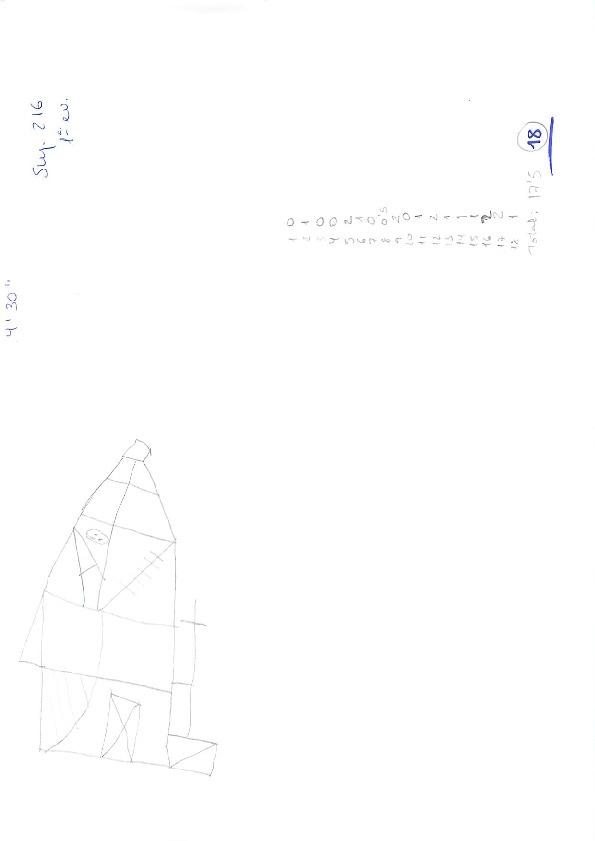 4' 30"
Suj. 216
1ª ev.
1 0
2 1
3 0
4 0
5 2
6 1
7 0
8 0'5
9 2
10 0
11 1
12 2
13 1
14 1
15 1
16 2
17 2
18 1
Total: 17'5 18